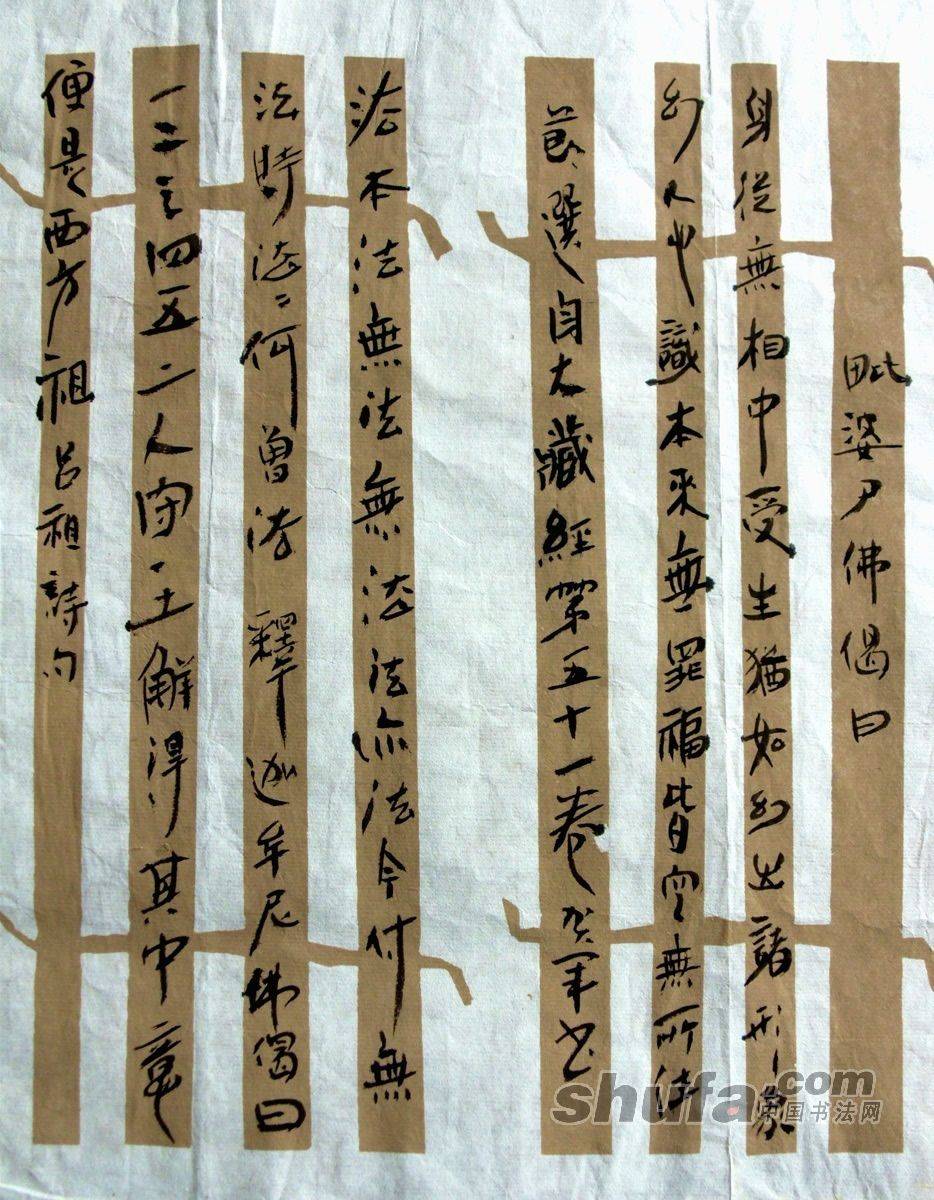 毗婆尸佛偈曰
身從無相中受生猶如幻出諸形象
幻人心識本來無罪福皆空無所住
節選自大藏經第五十一卷 賀軍書
法本法無法無法法亦法今付無
法時法〻何曾法 釋迦牟尼佛偈曰
一二三四五二人守一土解得其中意
便是西方祖 呂祖詩句
shufa.com
中国书法网